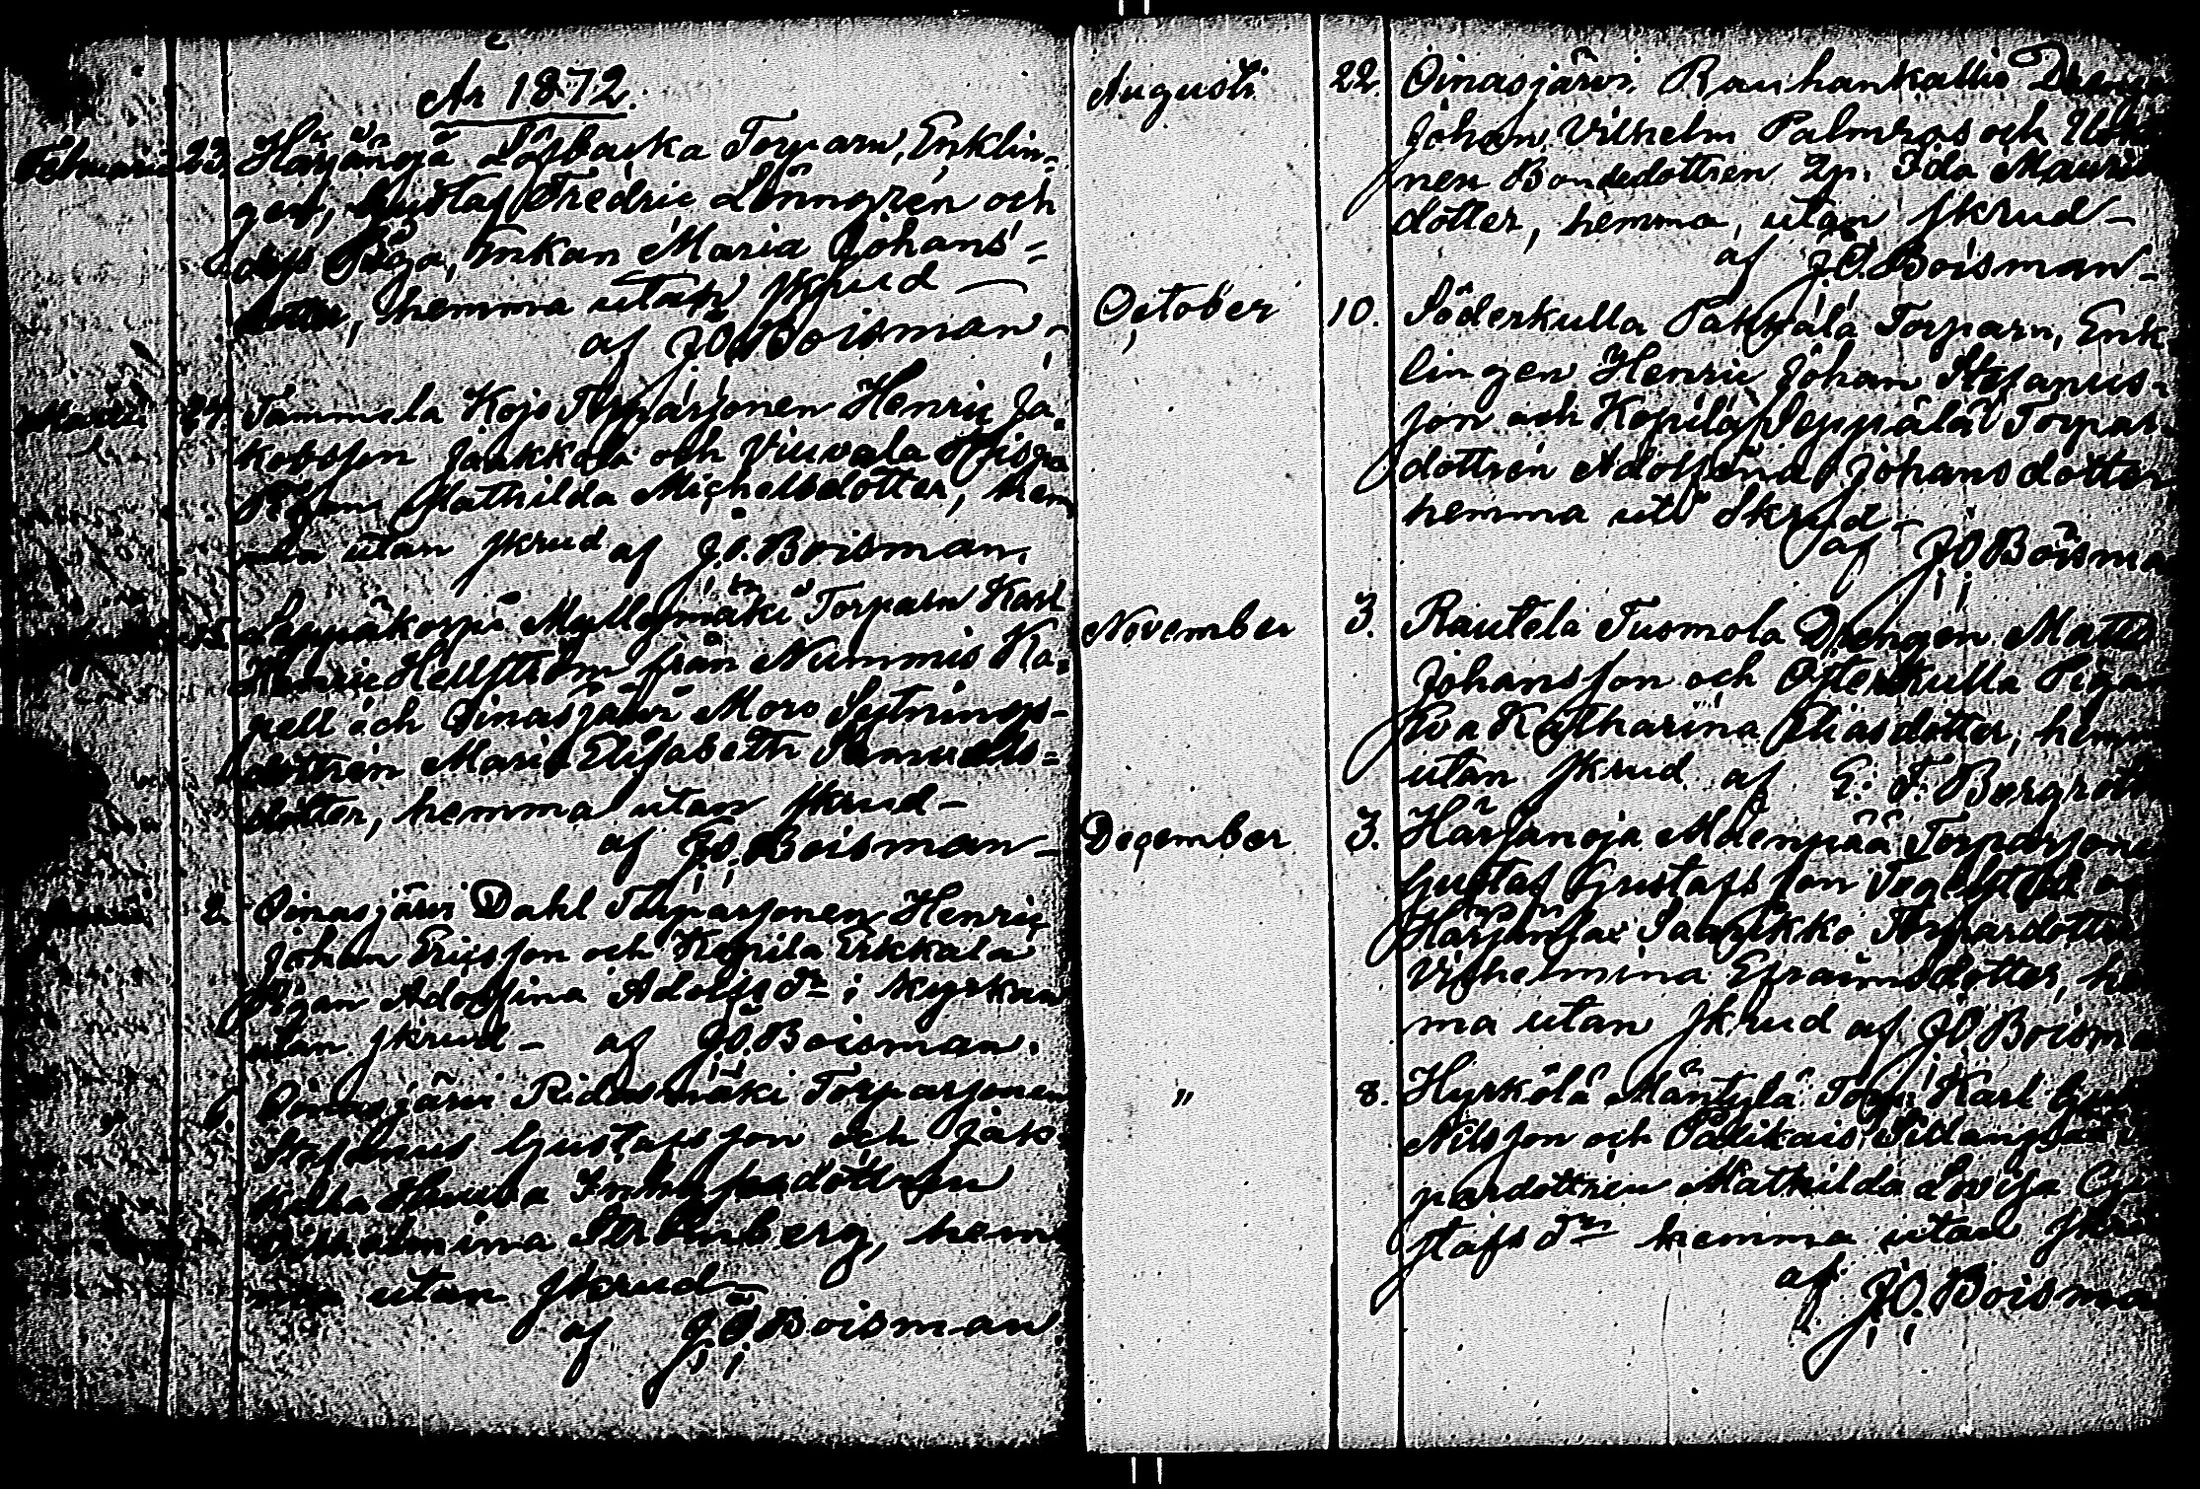 År 1872.
Februarii 23. Härjänoja Löfbacka Torparn, Enklin-
gen, Gustaf Fredric Lönngren och
dess Piga, Enkan Maria Johans-
dotter, hemma utan skrud —
af J. O. Boisman.
Martii 24. Tammela Kojo Torparsonen Henric Ja-
kobsson Jaakkola och Viuvala
Pigan Mathilda Michelsdotter, hem
ma utan skrud af J. O. Boisman.
15. Leppäkorpi Myllymäki Torparn Karl
Henric Hellström från Nummis Ka-
pell och Oinasjärvi Moro Sytnings-
dottren Maria Elisabeth Samuels-
dotter, hemma utan skrud —
af J. O. Boisman —
2. Oinasjärvi Dahl Torparsonen Henric
Johan Ericsson och Kopila Erkkala
Pigan Adolfina Adolfs dr i kyrkan
utan skrud — af J. O. Boisman.
6. Oinasjärvi Ridasmäki Torparsonen
Stefanus Gustafsson och Jak-
Inhysesdottren
Vilhelmina Strömberg, hem
ma utan skrud —
af J. O. Boisman
Augusti 22. Oinasjärvi Rauhankallio Drengen
Johan Vilhelm Palmroos och
nen Bondedottren Ida Mauri
dotter, hemma, utan skrud —
af J. O. Boisman —
October 10. Söderkulla Pakkala Torparn, Enk
lingen Henric Johan Stefanus-
son och Kopila Seppälä Torpar-
dottren Adolfina Johansdotter
hemma utan Skrud —
af J O Boisma
November 3. Rautela Tusmola Drengen Matts
Johansson och Österkulla Piga
Eva Katharina Eliasdotter, hem
utan skrud af G. F. Bergroth
December 3. Härjänoja Mäenpää Torparsonen
Gustaf Gustafsson Fogelstedt
Härjänoja Torpardottren
Vilhelmina Efraimsdotter, he
ma utan skrud af J O Boisma
" 8. Hyrkölä Mäntylä Torp. Karl Gust
Nilsson och Palikais
pardottren Mathilda Lovisa Gu
stafs dr hemma utan skru
af J. O. Boisma